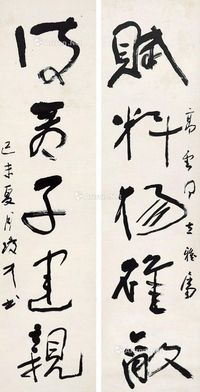 賦料揚雄敵
高雲同志雅屬
詩看子建親
己未夏月瓊才书